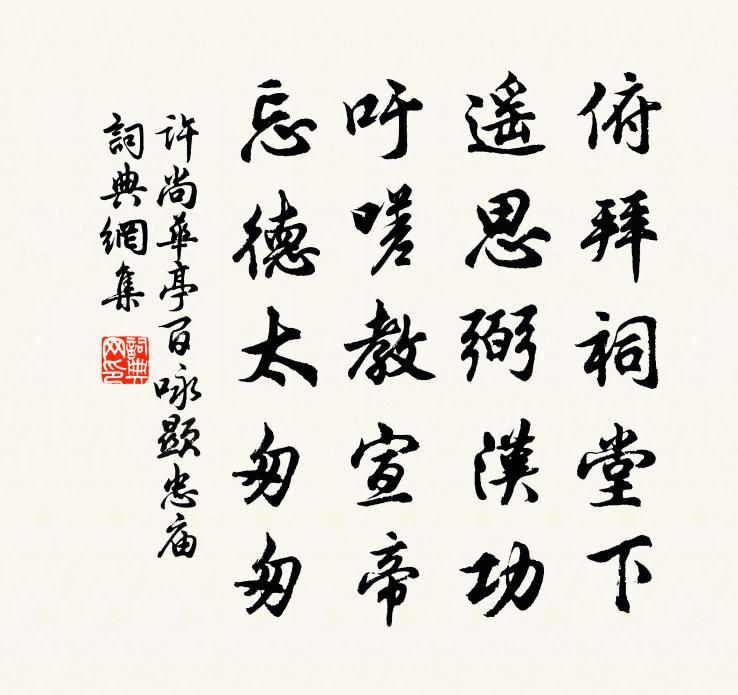 俯拜祠堂下
遥思弼漢功
吁嗟教宣帝
忘德太匆匆
許尚華亭百咏顯忠庙
詞典網集
詞典网印